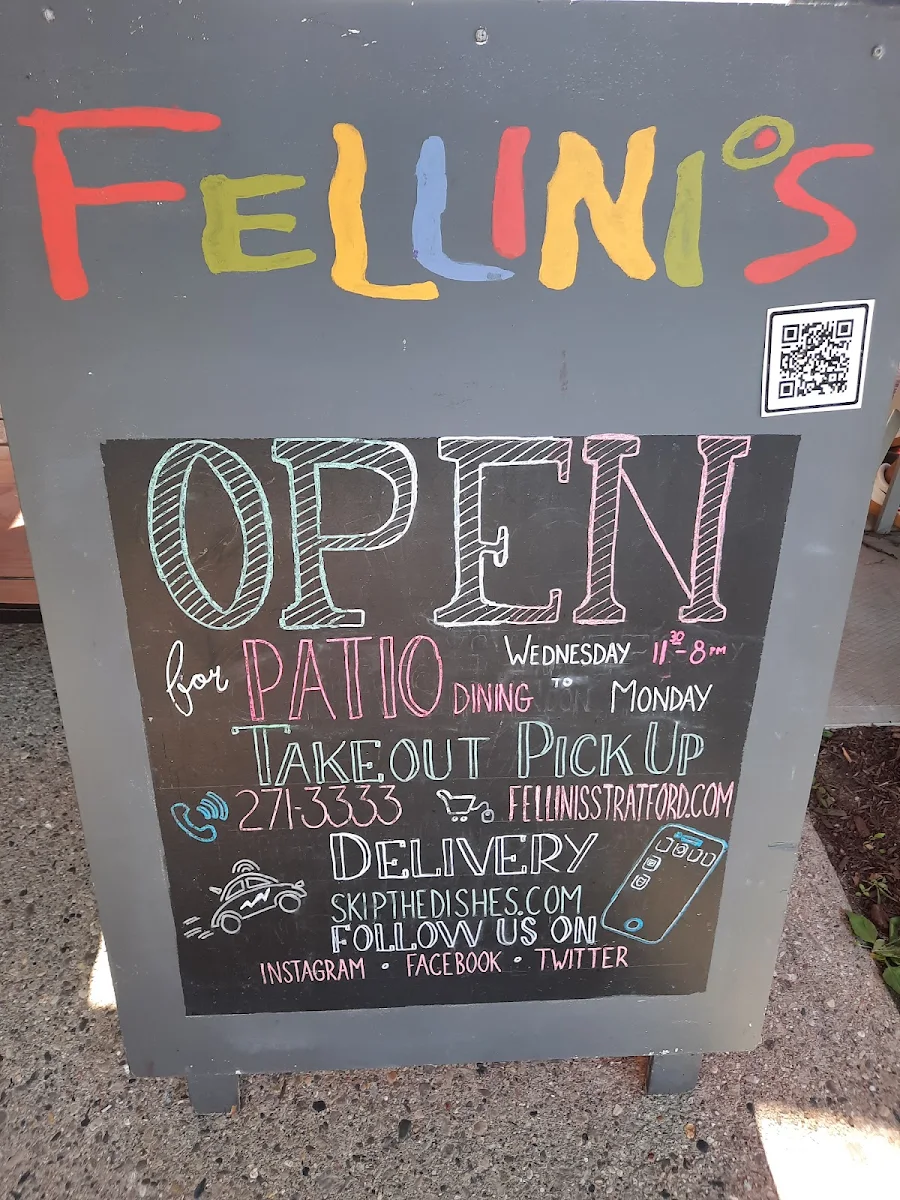 FELLINI'S
OPEN
for PATIO DINING
WEDNESDAY 11:30-8PM
TO MONDAY
TAKEOUT PICK UP
271-3333 FELLINISSTRATFORD.COM
DELIVERY
SKIPTHEDISHES.COM
FOLLOW US ON
INSTAGRAM • FACEBOOK • TWITTER